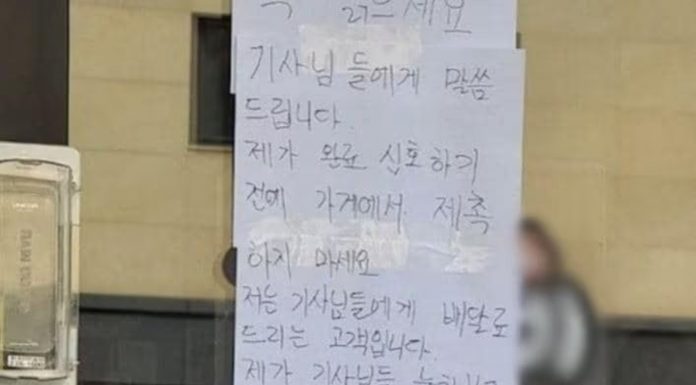 꼭 읽으세요
기사님들에게 말씀
드립니다.
제가 완료 신호하기
전에 가게에서 제촉
하지 마세요
저는 기사님들에게 배달료
드리는 고객입니다
제가 기사님들